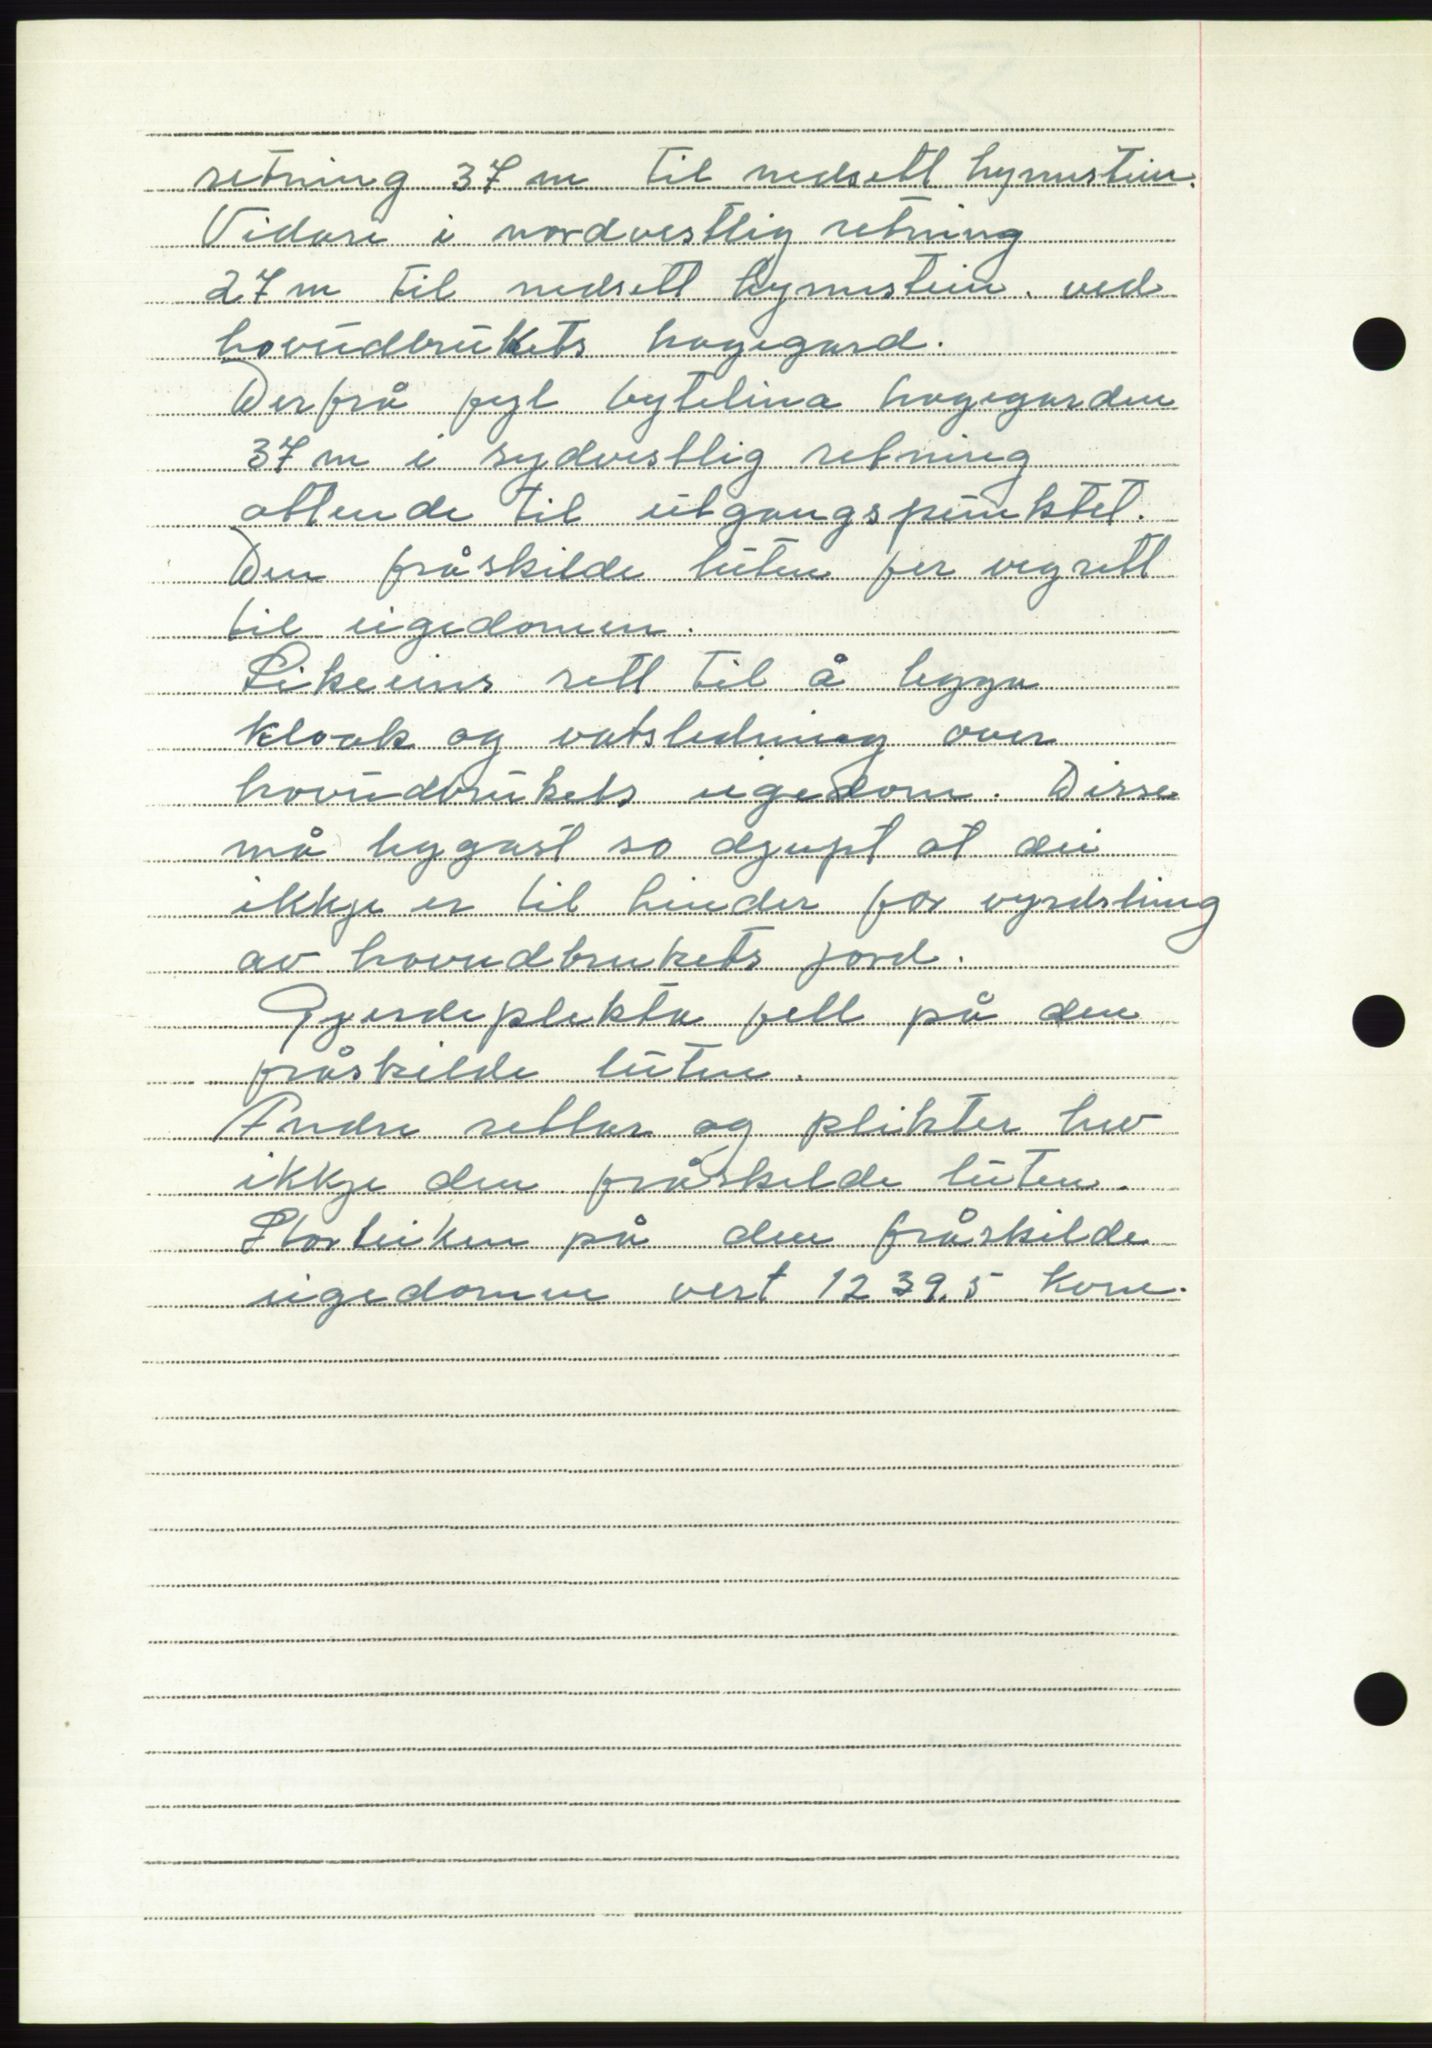 retning 37 m til nedsett hyrnestein.
Vidare i nordvestlig retning
27 m til nedsett hyrnestein. ved
hovudbrukets hagegard.
Derfrå fyl bytelina hagegarden
37 m i sydvestlig retning
attende til utgangspunktet.
Den fråskilde luten fer vegrett
til eigedomen.
Likeeins rett til å legga
kloak og vatsledning over
hovudbrukets eigedom. Disse
må leggast so djupt at dei
ikkje er til hinder for vyrdsling
av hovudbrukets jord.
Gjerdeplikta fell på den
fråskilde luten.
Andre rettar og plikter hev
ikkje den fråskilde luten.
Storleiken på den fråskilde
eigedomen vert 1239.5 kvm.